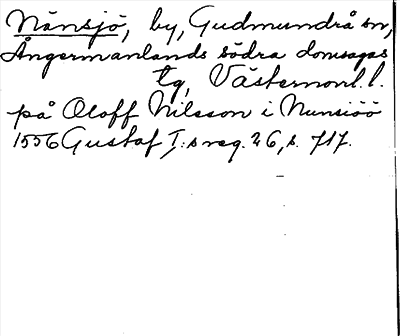 Nänsjö, by, Gudmundrå sn,
Ångermanlands södra domsagas
tg, Västernorrl. l.
på Oloff Nilsson i Nunsiöö
1556 Gustaf I:s reg. 26, s. 717.